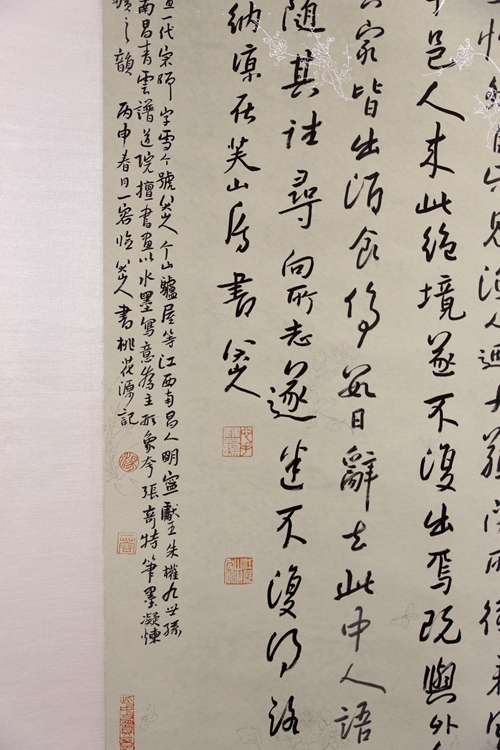 見漁人迺大驚問所從來
邑人來此絕境遂不復出焉既與外
家皆出酒食停數日辭去此中人語
隨其往尋向所志遂迷不復得路
納涼在芙山房書 八大山人
一代宗師 字雪个號八大山人个山驢屋等江西南昌人明寧獻王朱權九世孫
南昌青雲譜道院擅書畫以水墨寫意為主形象夸張奇特筆墨凝煉
之韻 丙申春日一容臨八大山人書桃花源記